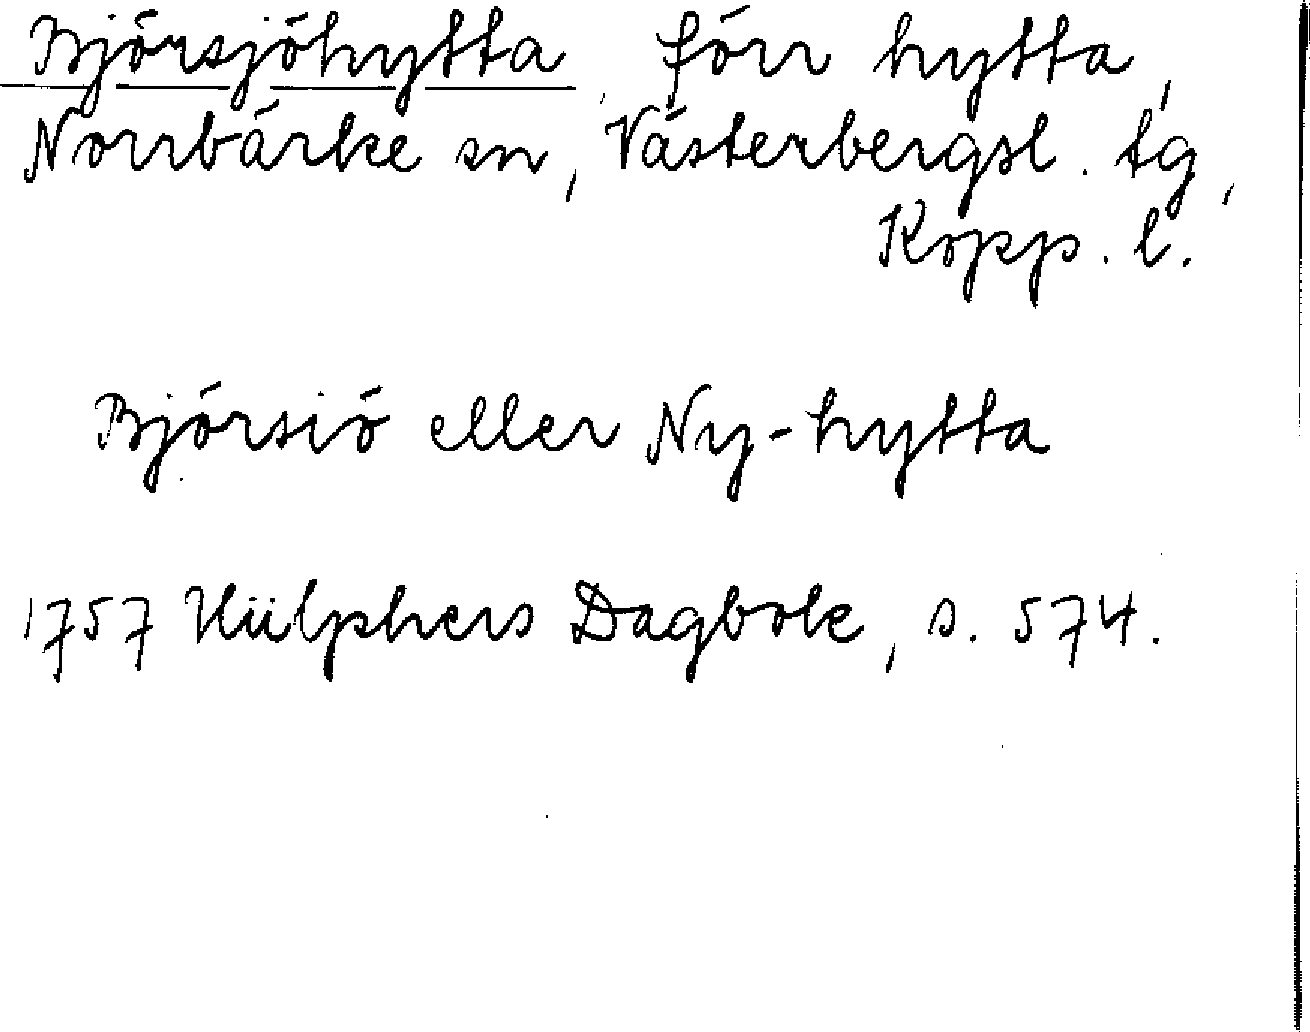 Björsjöhytta förr hytta,
Norrbärke sn, Västerbergsl. tg,
Kopp. l.
Björsiö eller Ny-hytta
1757 Hülphers Dagbok, s. 574.